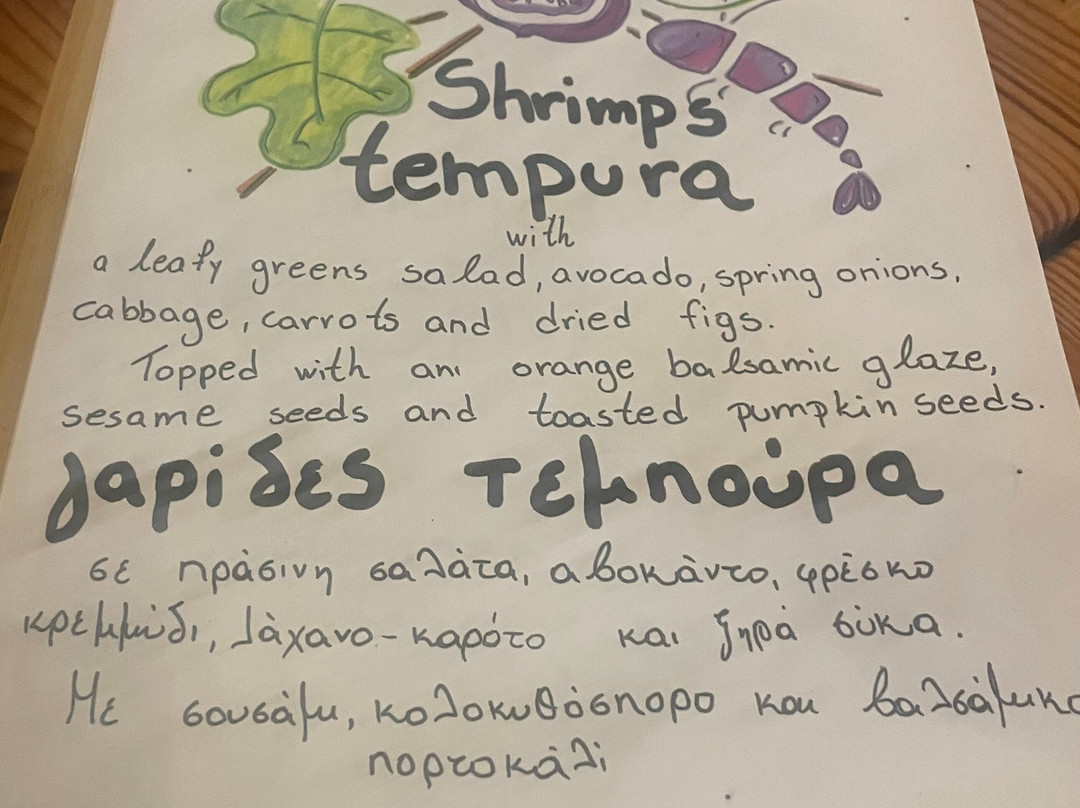 Shrimps
tempura
with
a leafy greens salad, avocado, spring onions,
cabbage, carrots and dried figs.
Topped with an orange balsamic glaze,
sesame seeds and toasted pumpkin seeds.
γαρίδες τεμπούρα
σε πράσινη σαλάτα, αβοκάντο, φρέσκο
κρεμμύδι, λάχανο-καρότο και ξηρά σύκα.
Με σουσάμι, κολοκυθόσπορο και βαλσάμικο
πορτοκάλι